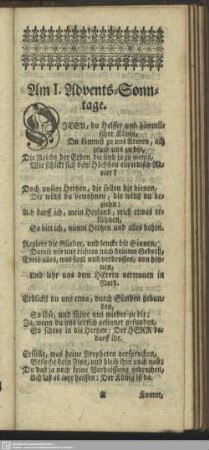 Am I. Advents-Sonn-
tage.
JESU, du Helffer und himmli-
scher König,
Du kömmst zu uns Armen, ich
zu dir,
Die Reiche der Erden die sind ja zu wenig,
Wie schickt sich dem Höchsten ein irdisch
vier?
Doch unsere Hertzen, die sollen dir dienen,
Die willt du bewohnen, die willt du be-
ziehn:
Ach darff ich, mein Heyland, mich etwas er-
kühnen,
So bitt ich, nimm Hertzen und alles dahin.
Regiere die Glieder, und lencke die Sinnen,
Damit wir verrichten nach deinem Geboth,
Treib alles, was faul und verdrossen, von hin-
nen,
Und lehr uns dem HErrn vertrauen in
Noth.
Erblickst du uns etwa, durch Sünden gebun-
den,
So löse, und führe uns wieder zu dir;
Ja, wenn du uns irdisch gesinnet gefunden,
So schrey in die Hertzen: Der HERR be-
darff ihr.
Erfülle, was deine Propheten versprechen,
Besuche dein Zion, und bleib ihm auch nah;
Du hast ja noch keine Verheissung gebrochen,
Ach laß es jetzt heissen: Der König ist da.
A
Kommt,